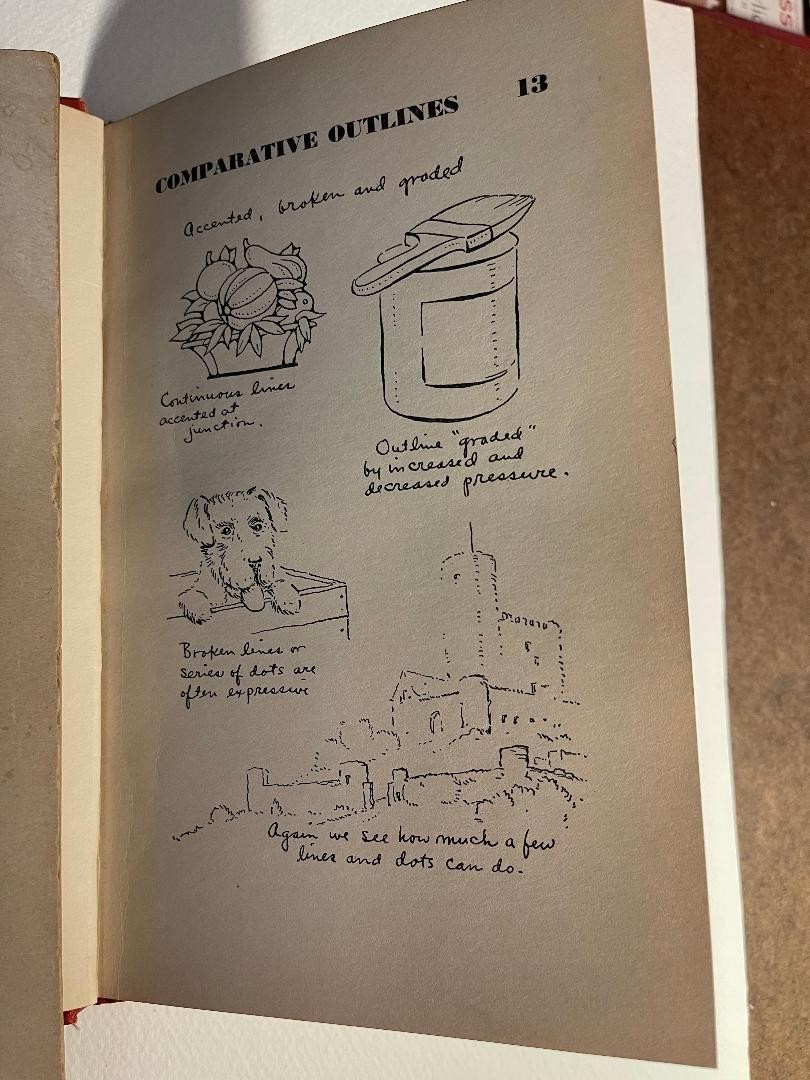 COMPARATIVE OUTLINES 13
Accented, broken and graded
Continuous lines
accented at
junction.
Outline "graded"
by increased and
decreased pressure.
Broken lines or
series of dots are
often expressive
Again we see how much a few
lines and dots can do.